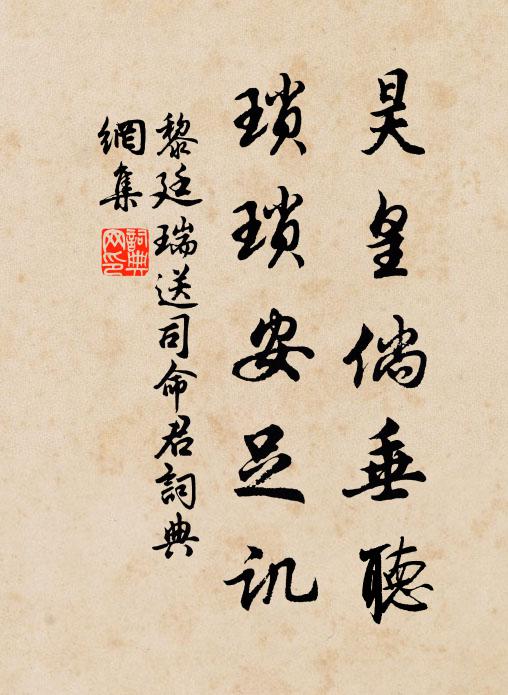 昊皇倘垂聽
瑣瑣安足讥
黎廷瑞送司命君詞典
網集
詞典網印